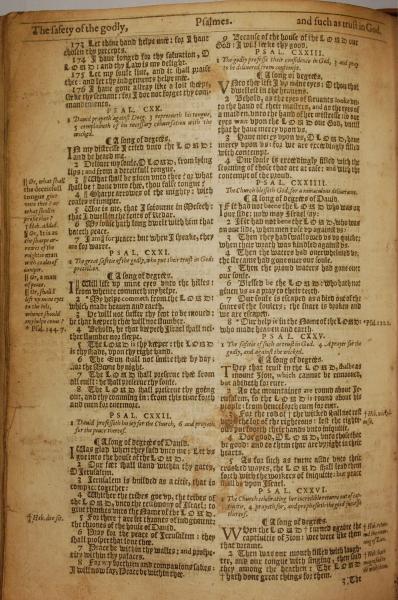 The safety of the godly,
Psalmes.
and such as trust in God.
173 Let thine hand helpe me: for I have
chosen thy precepts.
174 I have longed for thy salvation, O
LORD: and thy Law is my delight.
175 Let my soule live, and it shall praise
thee: and let thy iudgements helpe me.
176 I have gone astray like a lost sheepe,
seeke thy servant: for I doe not forget thy com-
mandements.
PSAL. CXX.
1 David prayeth against Doeg, 3 reproveth his tongue,
5 complaineth of his necessary conversation with the
wicked.
¶ A song of degrees.
IN my distresse I cried unto the LORD:
and he heard me.
2 Deliver my soule, O LORD, from lying
lips: and from a deceitfull tongue.
3 What shall be given unto thee? or what
shall be done unto thee, thou false tongue?
4 Sharpe arrowes of the mighty: with
coales of iuniper.
5 Woe is me, that I soiourne in Mesech:
that I dwell in the tents of Kedar.
6 My soule hath long dwelt with him that
hateth peace.
7 I am for peace: but when I speake, they
are for warre.
PSAL. CXXI.
1 The great safetie of the godly, who put their trust in Gods
protection.
¶ A song of degrees.
I Will lift up mine eyes unto the hilles:
from whence commeth my helpe.
2 My helpe commeth from the LORD:
which made heaven and earth.
3 He will not suffer thy foot to be mooved:
he that keepeth thee will not slumber.
4 Behold, he that keepeth Israel shall nei-
ther slumber nor sleepe.
5 The LORD is thy keeper: the LORD
is thy shade, upon thy right hand.
6 The Sun shall not smite thee by day;
nor the Moone by night.
7 The LORD shall preserve thee from
all evill: he shall preserve thy soule.
8 The LORD shall preserve thy going
out, and thy comming in: from this time forth
and even for evermore.
PSAL. CXXII.
1 David professeth his ioy for the Church, 6 and prayeth
for the peace thereof.
¶ A song of degrees of David.
I Was glad when they said unto me: Let us
goe into the house of the LORD.
2 Our feet shall stand within thy gates,
O Jerusalem.
3 Jerusalem is builded as a citie, that is
compact together:
4 Whither the tribes goe up, the tribes of
the LORD, unto the testimony of Israel; to
give thankes unto the Name of the LORD.
5 For there are set thrones of iudgement:
the thrones of the house of David.
6 Pray for the peace of Jerusalem: they
shall prosper that love thee.
7 Peace be within thy walles: and prospe-
ritie within thy palaces.
8 For my brethren and companions sakes:
I will now say, Peace be within thee.
9 Because of the house of the LORD our
God: I will seeke thy good.
PSAL. CXXIII.
1 The godly professe their confidence in God, 3 and pray
to be delivered from contempt.
¶ A song of degrees.
UNto thee lift I up mine eyes: O thou that
dwellest in the heavens.
2 Behold, as the eyes of servants looke un-
to the hand of their masters, and as the eyes of
a maiden, unto the hand of her mistresse: so our
eyes wait upon the LORD our God, until
that he have mercy upon us.
3 Have mercy upon us, O LORD, have
mercy upon us: for we are exceedingly filled
with contempt.
4 Our soule is exceedingly filled with the
scorning of those that are at ease: and with the
contempt of the proud.
PSAL. CXXIIII.
The Church blesseth God, for a miraculous deliverance.
¶ A song of degrees of David.
IF it had not bene the LORD who was on
our side: now may Israel say:
2 If it had not bene the LORD, who was
on our side, when men rose up against us:
3 Then they had swallowed us up quicke:
when their wrath was kindled against us.
4 Then the waters had overwhelmed us,
the streame had gone over our soule.
5 Then the proud waters had gone over
our soule.
6 Blessed be the LORD: who hath not
given us as a pray to their teeth.
7 Our soule is escaped as a bird out of the
snare of the foulers; the snare is broken and
we are escaped.
8 Our helpe is in the Name of the LORD:
who made heaven and earth.
PSAL. CXXV.
1 The safetie of such as trust in God. 4 A prayer for the
godly, and against the wicked.
¶ A song of degrees.
THey that trust in the LORD, shall be as
mount Zion, which cannot be remooved,
but abideth for ever.
2 As the mountaines are round about Je-
rusalem, so the LORD is round about his
people: from henceforth even for ever.
3 For the rod of the wicked shall not rest
upon the lot of the righteous: lest the righte-
ous put forth their hands unto iniquitie.
4 Doe good, O LORD, unto those that
be good: and to them that are upright in their
hearts.
5 As for such as turne aside unto their
crooked wayes, the LORD shall lead them
forth with the workers of iniquitie: but peace
shall be upon Israel.
PSAL. CXXVI.
1 The Church celebrating her incredible returne out of cap-
tivitie, 4 prayeth for, and prophesieth the good successe
thereof.
¶ A song of degrees.
WHen the LORD turned againe the
captivitie of Zion: wee were like them
that dreame.
2 Then was our mouth filled with laugh-
ter, and our tongue with singing, then said
they among the heathen; The LORD
hath done great things for them.
3 The